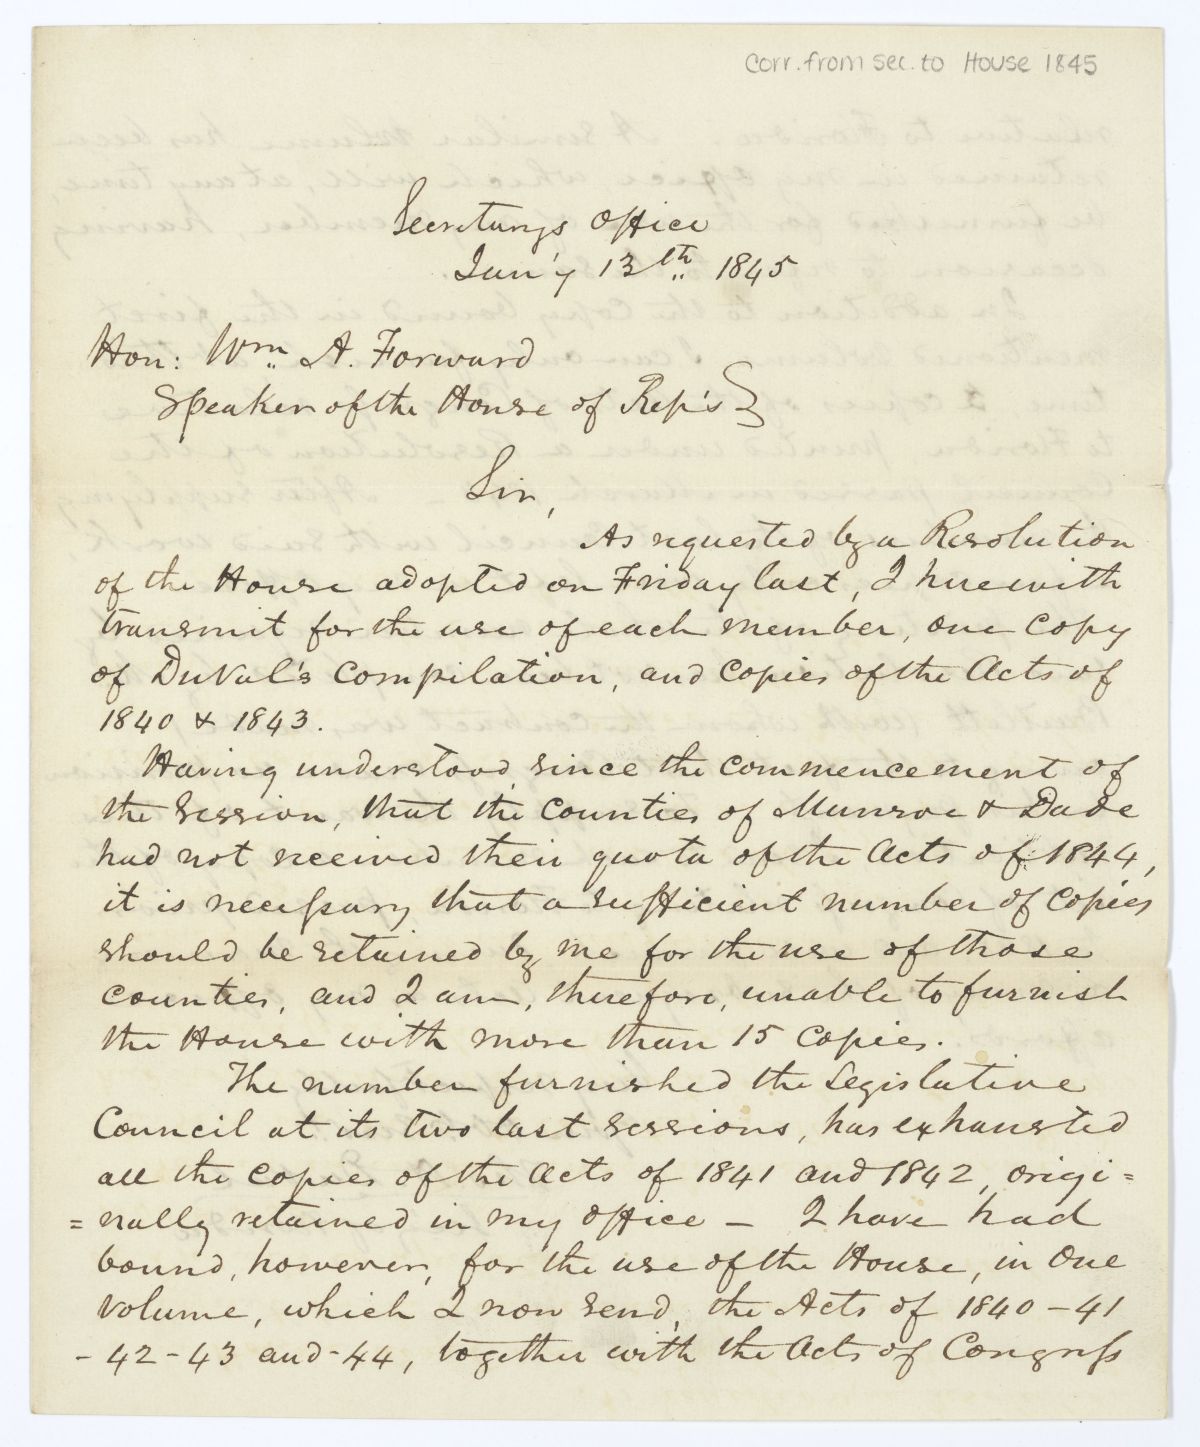 Corr. from Sec. to House 1845
Secretarys Office
Jan'y 13th 1845
Hon: Wm A. Forward
Speaker of the House of Rep's
Sir,
As requested by a Resolution
of the House adopted on Friday last, I herewith
transmit for the use of each member, one copy
of DuVal's Compilation, and copies of the Acts of
1840 & 1843.
Having understood, since the commencement of
the Session, that the Counties of Munroe & Dade
had not received their quota of the Acts of 1844,
it is necessary that a sufficient number of copies
should be retained by me for the use of those
counties, and I am, therefore, unable to furnish
the House with more than 15 copies.
The number furnished the Legislative
Council at its two last sessions, has exhausted
all the copies of the Acts of 1841 and 1842, origi=
=nally retained in my office – I have had
bound, however, for the use of the House, in one
volume, which I now send, the Acts of 1840 – 41
– 42 – 43 and – 44, together with the Acts of Congress